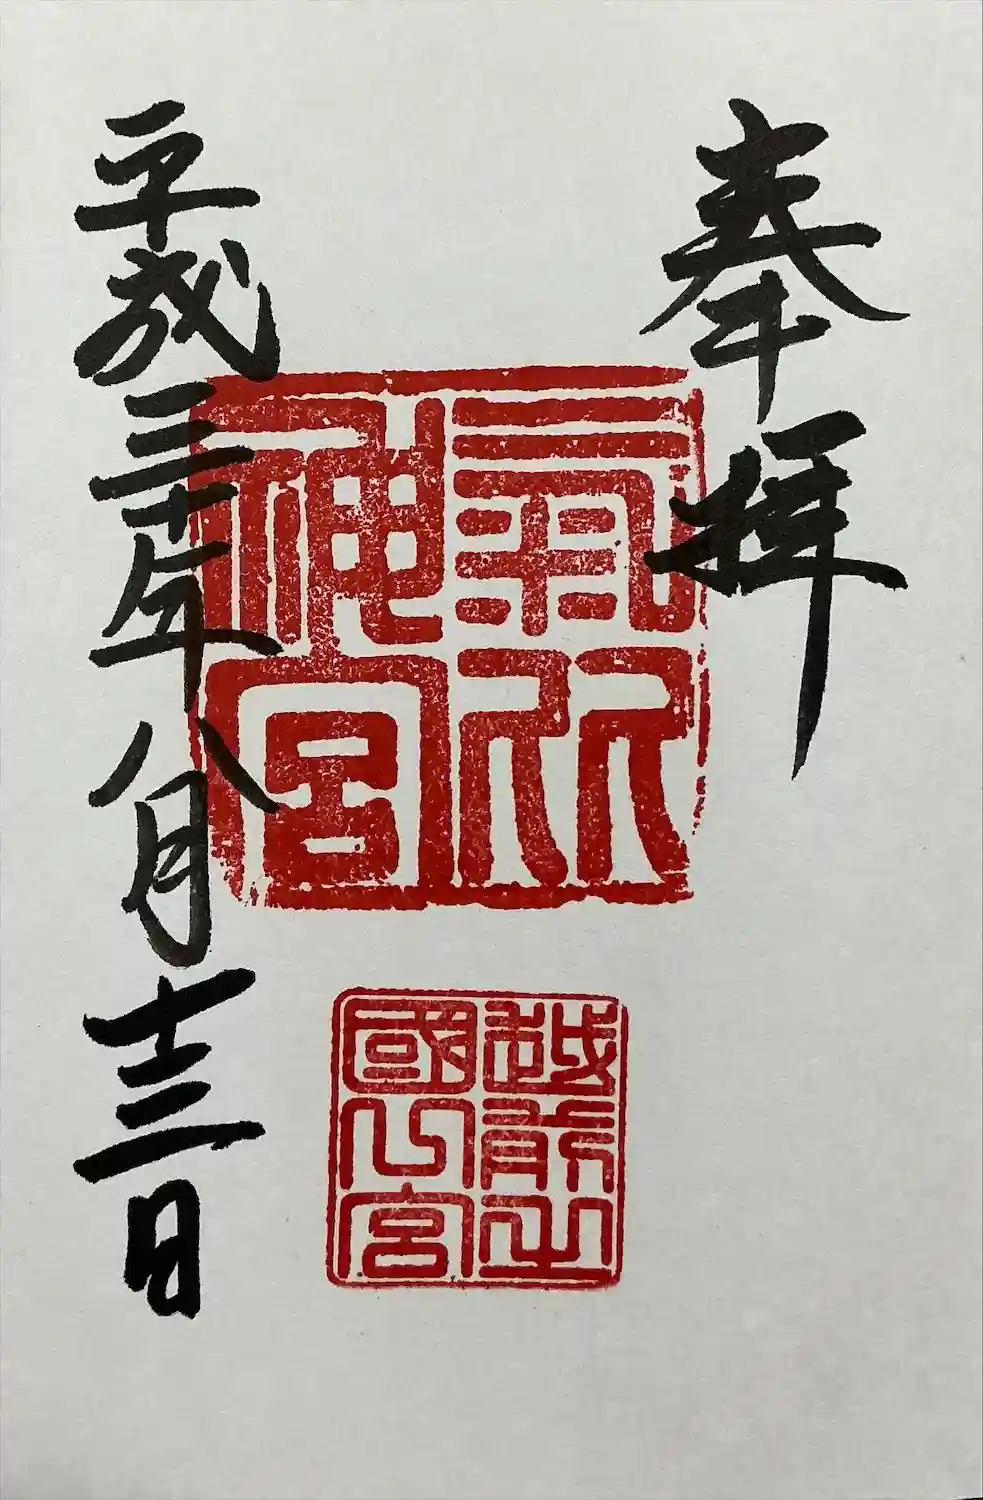 奉拝
氣比
神宮
越前之
國宮
平成三十年八月十三日